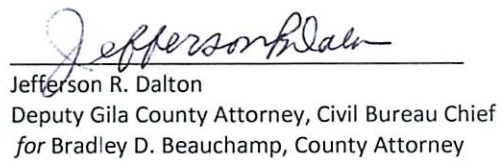 Jefferson R Dalton
Jefferson R. Dalton
Deputy Gila County Attorney, Civil Bureau Chief
for Bradley D. Beauchamp, County Attorney